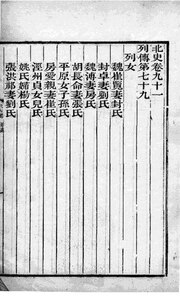 北史卷九十一
列傳第七十九
列女
魏崔覽妻封氏
封卓妻劉氏
魏溥妻房氏
胡長命妻張氏
平原女子孫氏
房愛親妻崔氏
涇州貞女兒氏
姚氏婦楊氏
張洪祁妻劉氏